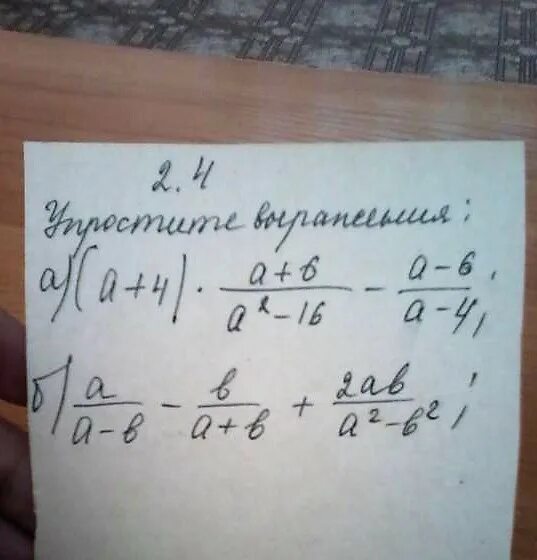 2.4
Упростите выражения:
а) (a+4) · (a+6)/(a²-16) - (a-6)/(a-4);
б) a/(a-в) - в/(a+в) + 2aв/(a²-в²);